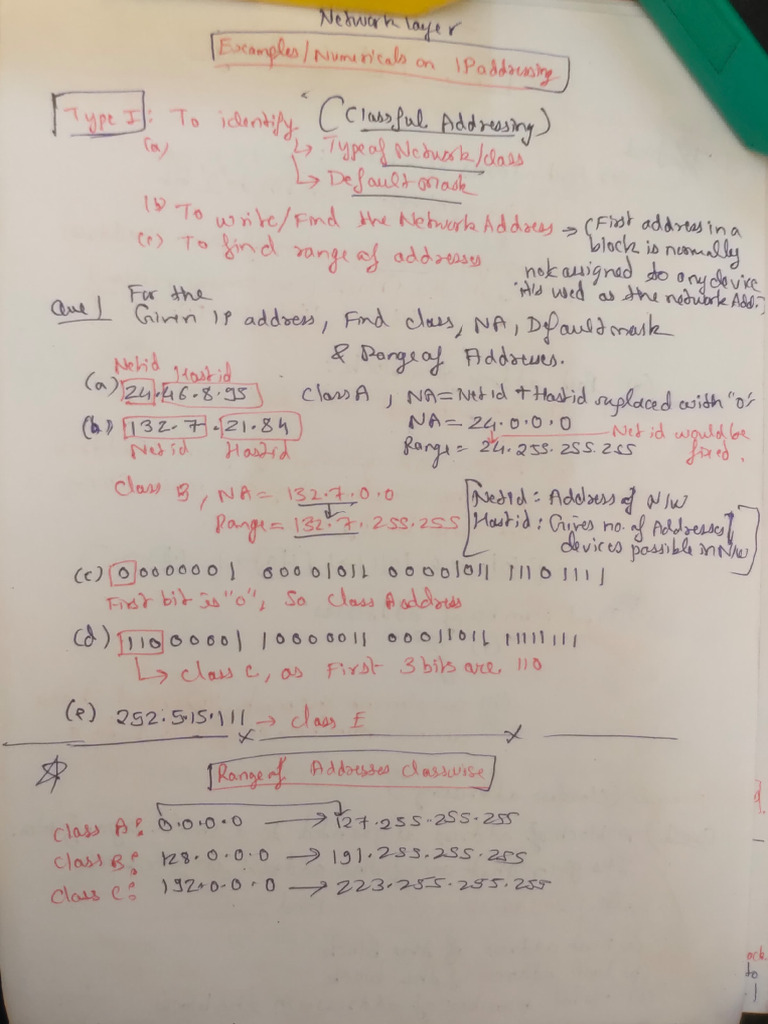 Network layer
Examples/Numericals on IP addressing
Type I: To identify (Classful Addressing)
(a) ↳ Type of Network/class
↳ Default Mask
(b) To write/Find the Network Address → (First address in a
block is normally
not assigned to any device
It is used as the network Add.)
(c) To find range of addresses
Que 1 For the
Given IP address, Find class, NA, Default mask
& Range of Addresses.
Netid Hostid
(a) 24.46.8.95 Class A, NA = Netid + Hostid replaced with "0"
NA = 24.0.0.0
(b) 132.7.21.84
Netid Hostid
Range = 24.255.255.255
Net id would be
fixed.
Class B, NA = 132.7.0.0
Range = 132.7.255.255
NetId: Address of N/W
Hostid: Gives no. of Addresses/
devices possible in N/W
(c) 00000001 00001011 00001011 11101111
First bit is "0", So Class A address
(d) 11000001 10000011 00011011 11111111
↳ Class C, as First 3 bits are 110
(e) 252.5.15.111 → Class E
Range of Addresses Classwise
Class A: 0.0.0.0 → 127.255.255.255
Class B: 128.0.0.0 → 191.255.255.255
Class C: 192.0.0.0 → 223.255.255.255